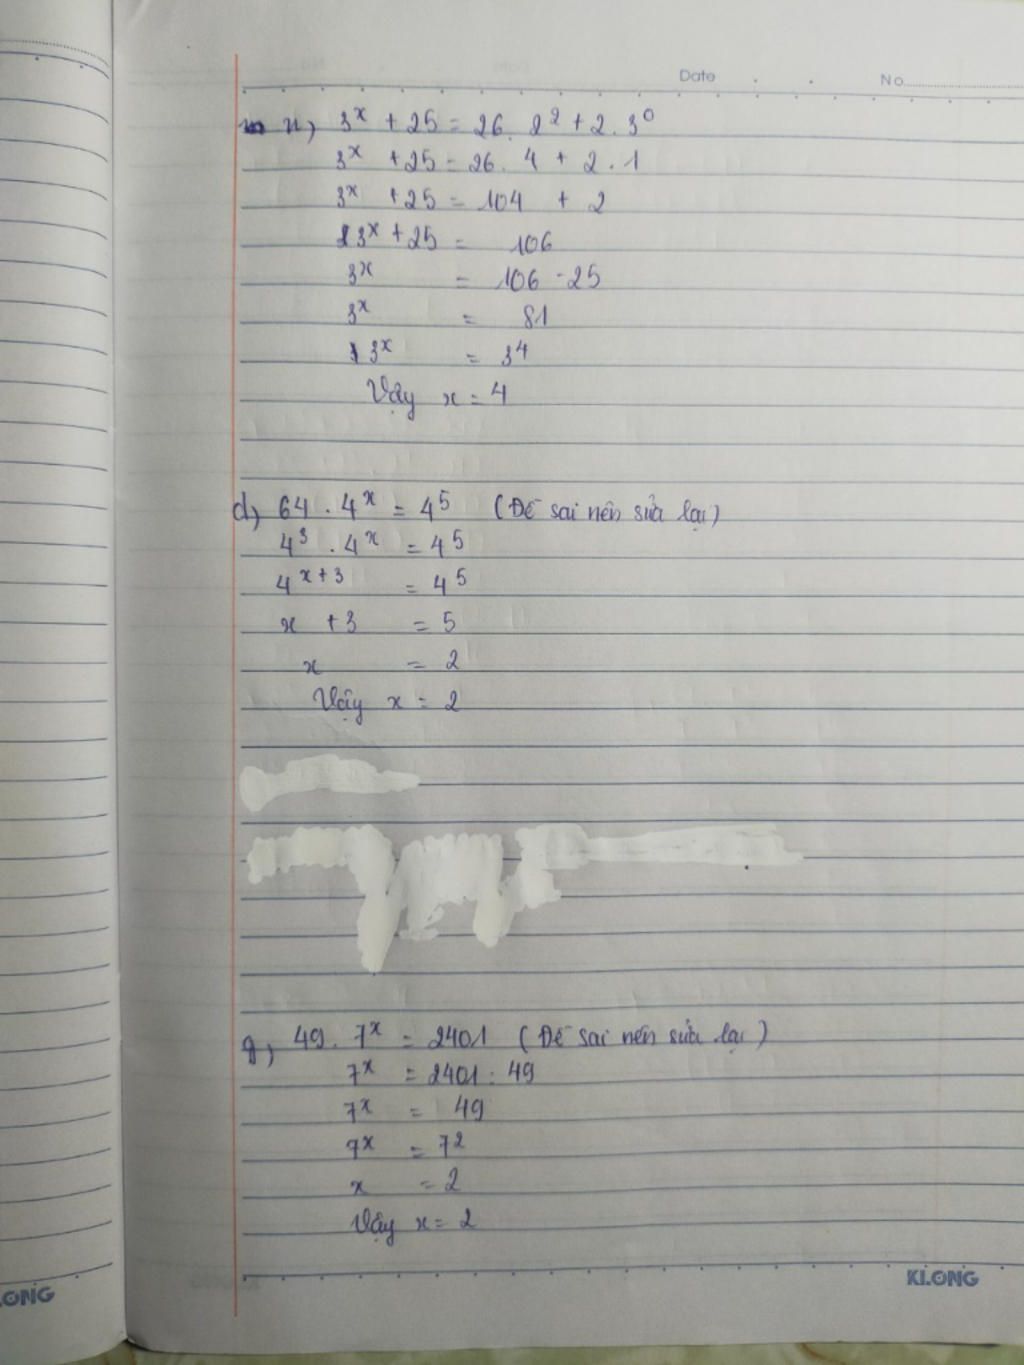 Date No
n, 3^x + 25 = 26. 2^2 + 2. 3^0
3^x + 25 = 26. 4 + 2. 1
3^x + 25 = 104 + 2
3^x + 25 = 106
3^x = 106 - 25
3^x = 81
3^x = 3^4
Vậy x = 4
d, 64 . 4^x = 4^5 (Đề sai nên sửa lại)
4^3 . 4^x = 4^5
4^x+3 = 4^5
x + 3 = 5
x = 2
Vậy x = 2
g, 49. 7^x = 2401 (Đề sai nên sửa lại)
7^x = 2401 : 49
7^x = 49
7^x = 7^2
x = 2
Vậy x = 2
KLONG
LONG